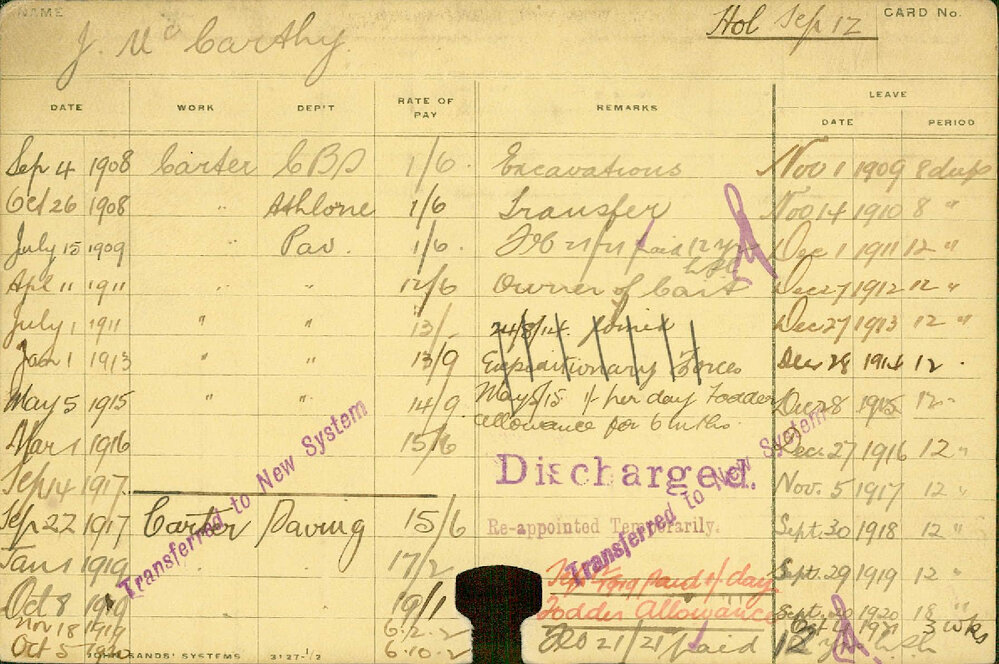 NAME
Hol Sep 12
CARD No.
J. McCarthy.
DATE WORK DEP'T RATE OF PAY REMARKS LEAVE
DATE PERIOD
Sep 4 1908 Carter CBD 1/6 Excavations Nov 1 1909 8 days
Oct 26 1908 " Athlone 1/6 Transfer Nov 14 1910 8 "
July 15 1909 " Pav. 1/6 Feb 21/21 paid 12 Dec 1 1911 12 "
Apl 11 1911 " " 12/6 Owner of Cart Dec 27 1912 12 "
July 1 1911 " " 13/- 24/8/14 joined Dec 27 1913 12 "
Jan 1 1913 " " 13/9 Expeditionary Forces Dec 28 1914 12 "
May 5 1915 " " 14/9 May 5/15 1/- per day Fodder Dec 28 1915 12 "
allowance for 6 mths.
Mar 1 1916 15/6 Dec. 27 1916 12 "
Transferred to New System
Discharged.
Sep 14 1917 Nov. 5 1917 12 "
Sep 22 1917 Carter Paving 15/6 Re-appointed Temporarily. Sept. 30 1918 12 "
Transferred to New System
Jan 1 1919 " " 17/2 1919 Paid 1/- day Sept. 29 1919 12 "
Oct 8 1919 19/1 Fodder Allowance Sept. 20 1920 18 "
Nov 18 1919 6.2.2 Feb 21/21 paid 12 Oct 1921 3 wks
Oct 5 1920 6.10.2
JOHN SANDS' SYSTEMS 3127-1/2